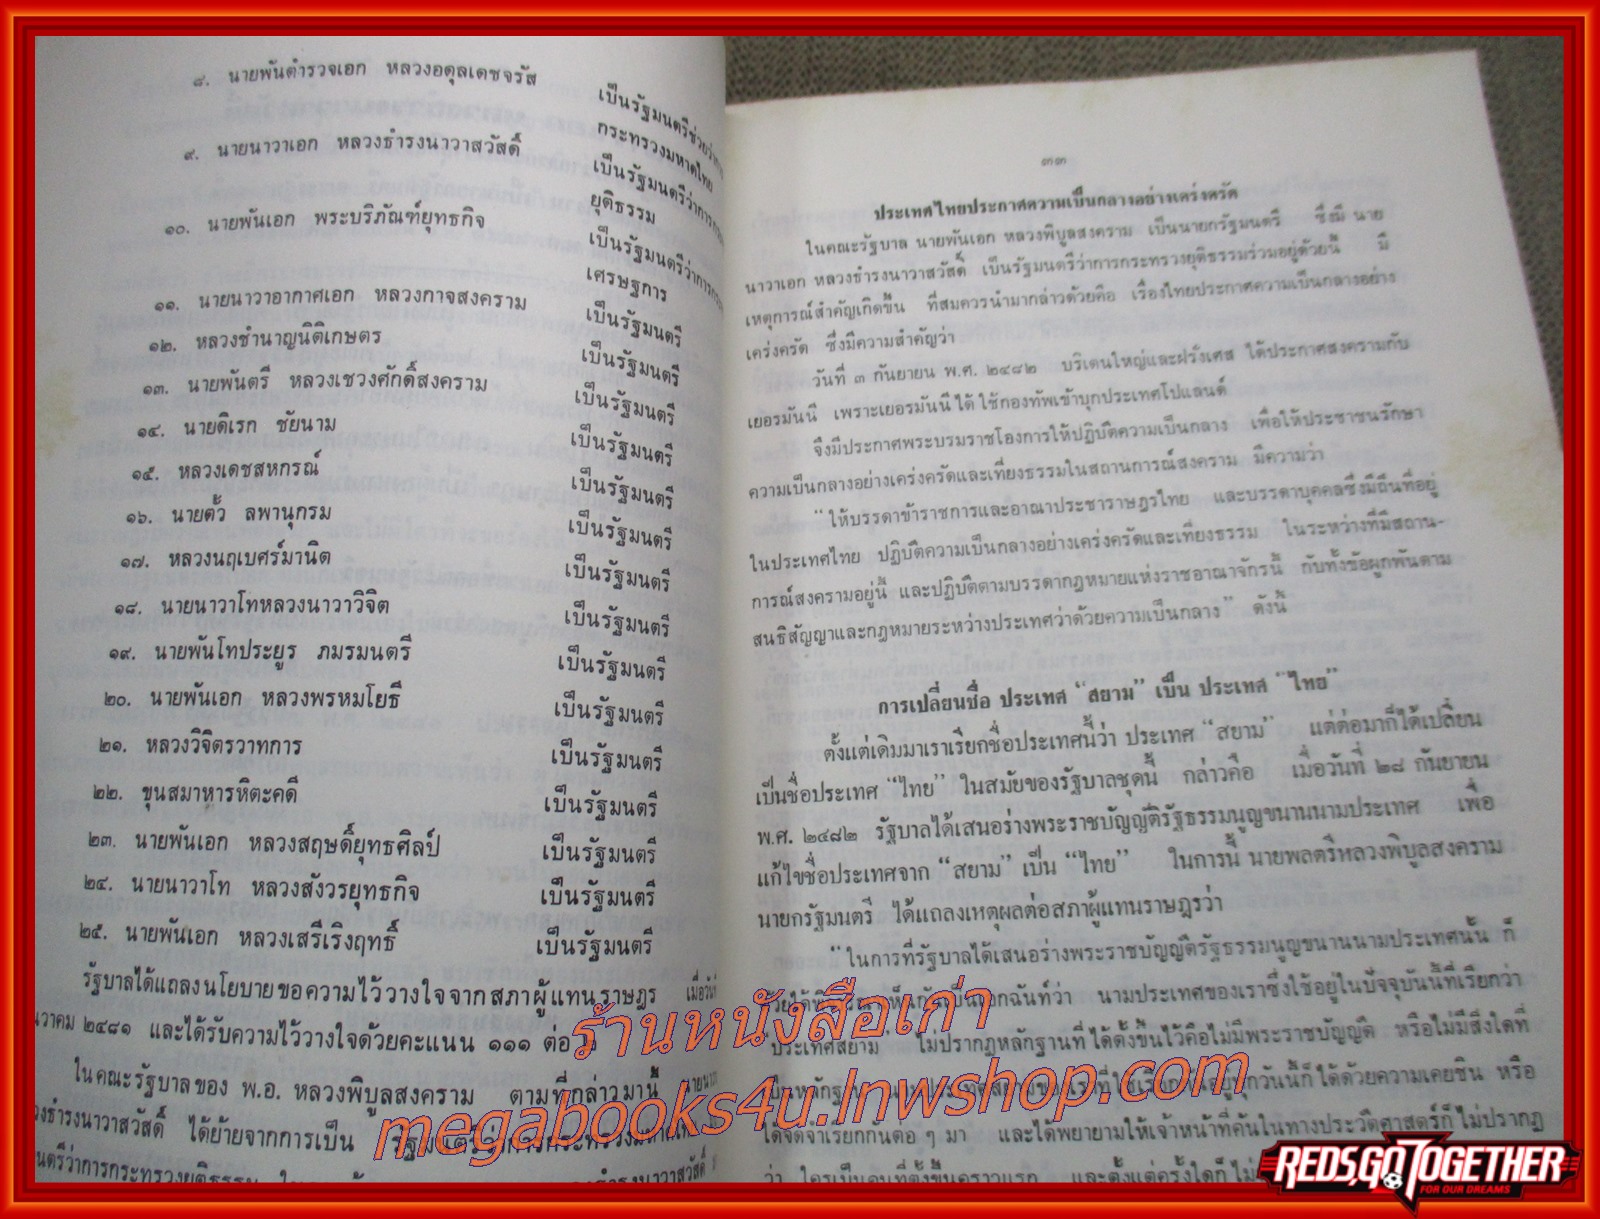 ๘. นายพันตำรวจเอก หลวงอดุลเดชจรัส
เป็นรัฐมนตรีช่วยว่าการ
กระทรวงมหาดไทย
๙. นายนาวาเอก หลวงธำรงนาวาสวัสดิ์
เป็นรัฐมนตรีว่าการ
ยุติธรรม
๑๐. นายพันเอก พระบริภัณฑ์ยุทธกิจ
เป็นรัฐมนตรีว่าการ
เศรษฐการ
๑๑. นายนาวาอากาศเอก หลวงกาจสงคราม เป็นรัฐมนตรี
๑๒. หลวงชำนาญนิติเกษตร เป็นรัฐมนตรี
๑๓. นายพันตรี หลวงเชวงศักดิ์สงคราม เป็นรัฐมนตรี
๑๔. นายดิเรก ชัยนาม เป็นรัฐมนตรี
๑๕. หลวงเดชสหกรณ์ เป็นรัฐมนตรี
๑๖. นายตั้ว ลพานุกรม เป็นรัฐมนตรี
๑๗. หลวงนฤเบศร์มานิต เป็นรัฐมนตรี
๑๘. นายนาวาโทหลวงนาวาวิจิต เป็นรัฐมนตรี
๑๙. นายพันโทประยูร ภมรมนตรี เป็นรัฐมนตรี
๒๐. นายพันเอก หลวงพรหมโยธี เป็นรัฐมนตรี
๒๑. หลวงวิจิตรวาทการ เป็นรัฐมนตรี
๒๒. ขุนสมาหารหิตะคดี เป็นรัฐมนตรี
๒๓. นายพันเอก หลวงสฤษดิ์ยุทธศิลป์ เป็นรัฐมนตรี
๒๔. นายนาวาโท หลวงสังวรยุทธกิจ เป็นรัฐมนตรี
๒๕. นายพันเอก หลวงเสรีเริงฤทธิ์ เป็นรัฐมนตรี
รัฐบาลได้แถลงนโยบายขอความไว้วางใจจากสภาผู้แทนราษฎร
๒๔๘๑ และได้รับความไว้วางใจด้วยคะแนน ๑๑๑ ต่อ
ในคณะรัฐบาลของ พ.อ. หลวงพิบูลสงคราม ตามที่กล่าวมานี้
ธำรงนาวาสวัสดิ์ ได้ย้ายจากการเป็น
ว่าการกระทรวงยุติธรรม
๓๓
ประเทศไทยประกาศความเป็นกลางอย่างเคร่งครัด
ในคณะรัฐบาล นายพันเอก หลวงพิบูลสงคราม เป็นนายกรัฐมนตรี ซึ่งมี นาย
นาวาเอก หลวงธำรงนาวาสวัสดิ์ เป็นรัฐมนตรีว่าการกระทรวงยุติธรรมร่วมอยู่ด้วยนี้ มี
เหตุการณ์สำคัญเกิดขึ้น ที่สมควรนำมากล่าวด้วยคือ เรื่องไทยประกาศความเป็นกลางอย่าง
เคร่งครัด ซึ่งมีความสำคัญว่า
วันที่ ๓ กันยายน พ.ศ. ๒๔๘๒ บริเตนใหญ่และฝรั่งเศส ได้ประกาศสงครามกับ
เยอรมันนี เพราะเยอรมันนีได้ใช้กองทัพเข้าบุกประเทศโปแลนด์
จึงมีประกาศพระบรมราชโองการให้ปฏิบัติความเป็นกลาง เพื่อให้ประชาชนรักษา
ความเป็นกลางอย่างเคร่งครัดและเที่ยงธรรมในสถานการณ์สงคราม มีความว่า
“ให้บรรดาข้าราชการและอาณาประชาราษฎรไทย และบรรดาบุคคลซึ่งมีถิ่นที่อยู่
ในประเทศไทย ปฏิบัติความเป็นกลางอย่างเคร่งครัดและเที่ยงธรรม ในระหว่างที่มีสถาน-
การณ์สงครามอยู่นี้ และปฏิบัติตามบรรดากฎหมายแห่งราชอาณาจักรนี้ กับทั้งข้อผูกพันตาม
สนธิสัญญาและกฎหมายระหว่างประเทศว่าด้วยความเป็นกลาง” ดังนี้
การเปลี่ยนชื่อ ประเทศ “สยาม” เป็น ประเทศ “ไทย”
ตั้งแต่เดิมมาเราเรียกชื่อประเทศนี้ว่า ประเทศ “สยาม” แต่ต่อมาก็ได้เปลี่ยน
เป็นชื่อประเทศ “ไทย” ในสมัยของรัฐบาลชุดนี้ กล่าวคือ เมื่อวันที่ ๒๘ กันยายน
พ.ศ. ๒๔๘๒ รัฐบาลได้เสนอร่างพระราชบัญญัติรัฐธรรมนูญขนานนามประเทศ เพื่อ
แก้ไขชื่อประเทศจาก “สยาม” เป็น “ไทย” ในการนี้ นายพลตรีหลวงพิบูลสงคราม
นายกรัฐมนตรี ได้แถลงเหตุผลต่อสภาผู้แทนราษฎรว่า
“ในการที่รัฐบาลได้เสนอร่างพระราชบัญญัติรัฐธรรมนูญขนานนามประเทศนั้น ก็
นามประเทศของเราซึ่งใช้อยู่ในปัจจุบันนี้ที่เรียกว่า
ประเทศสยาม ไม่ปรากฏหลักฐานที่ได้ตั้งขึ้นไว้คือไม่มีพระราชบัญญัติ หรือไม่มีสิ่งใดที่
ก็ได้ด้วยความเคยชิน หรือ
ได้จดจำเรียกกันต่อ ๆ มา และได้พยายามให้เจ้าหน้าที่ค้นในทางประวัติศาสตร์ก็ไม่ปรากฏ
ว่า ใครเป็นคนที่ตั้งขึ้นคราวแรก และตั้งแต่ครั้งใดก็ไม่
ร้านหนังสือเก่า
megabooks4u.lnwshop.com
REDS,GO TOGETHER
FOR OUR DREAMS